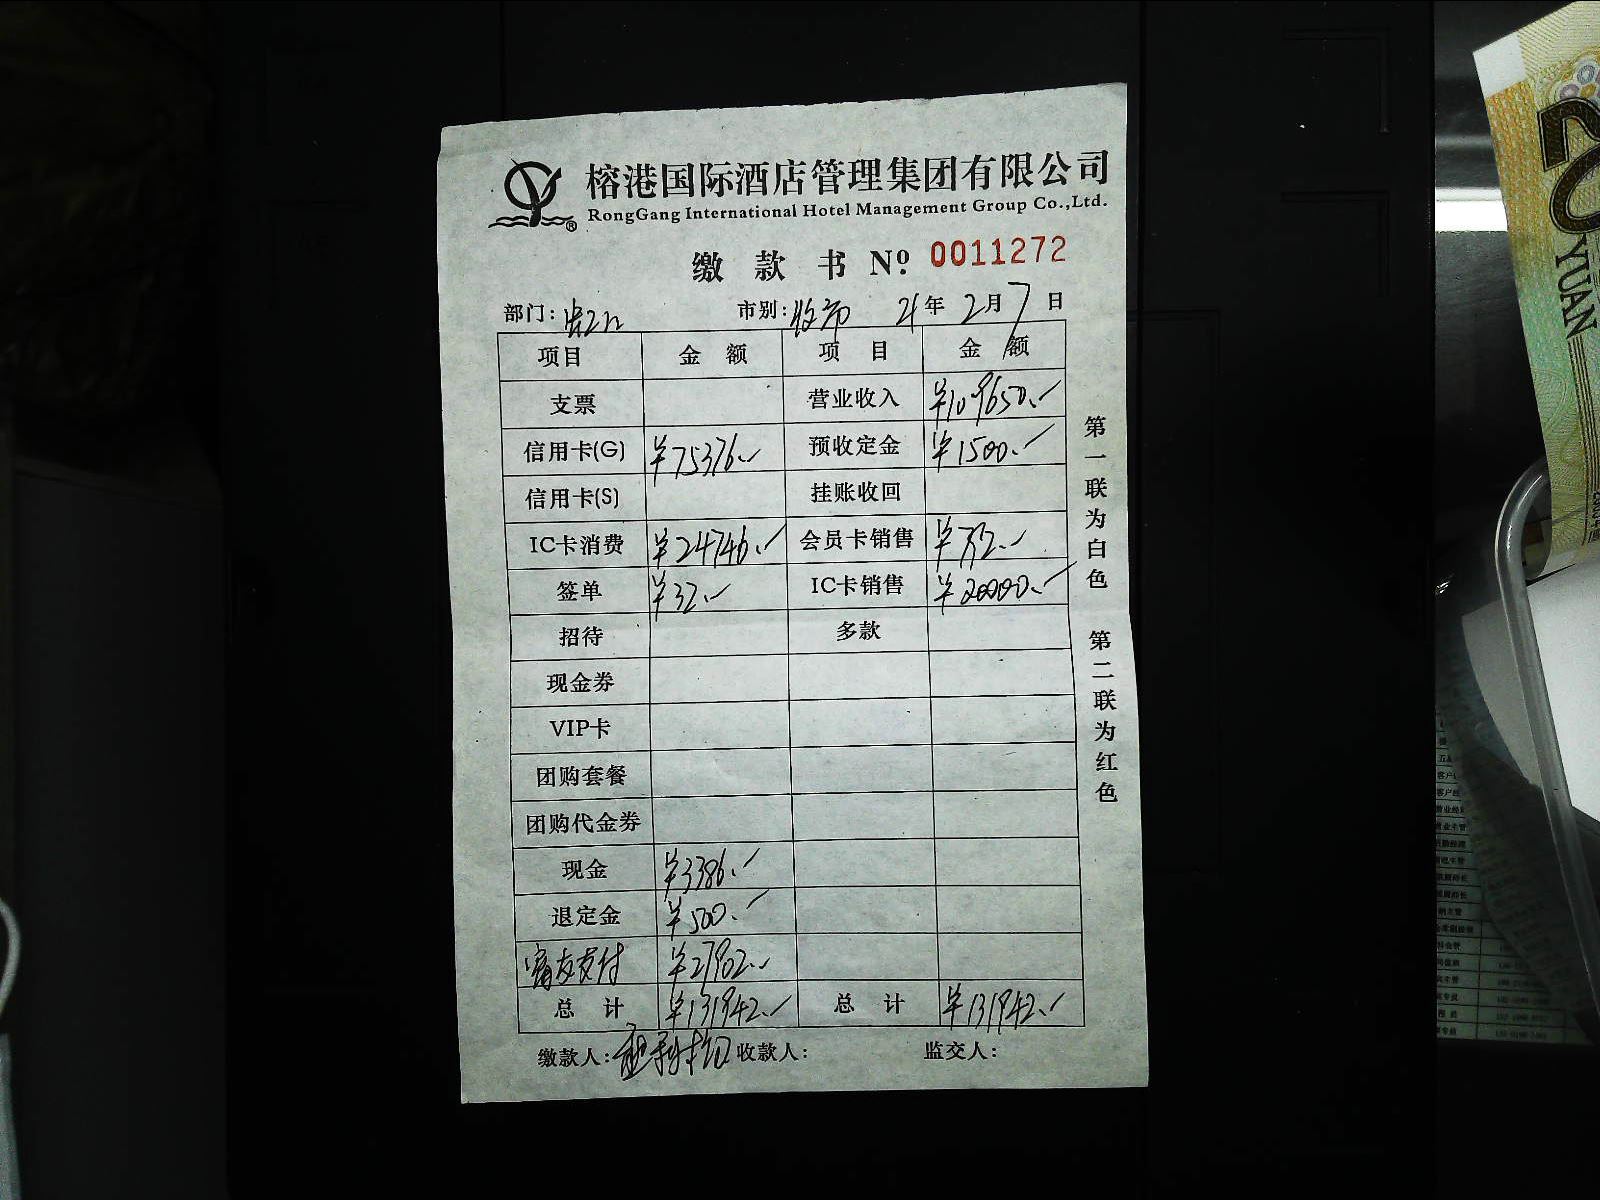 榕港国际酒店管理集团有限公司
RongGang International Hotel Management Group Co.,Ltd.
缴款书 Nº 0011272
部门: 市别: 收市 21年2月7日
项目 金额 项目 金额
支票 营业收入 ¥109650.
信用卡(G) ¥75376. 预收定金 ¥1500.
信用卡(S) 挂账收回
IC卡消费 ¥24746. 会员卡销售 ¥792.
签单 ¥32. IC卡销售 ¥20000.
招待 多款
现金券
VIP卡
团购套餐
团购代金券
现金 ¥3386.
退定金 ¥500.
支付 ¥27902.
总计 ¥131942. 总计 ¥131942.
缴款人: 收款人: 监交人:
第一联为白色 第二联为红色
20
YUAN